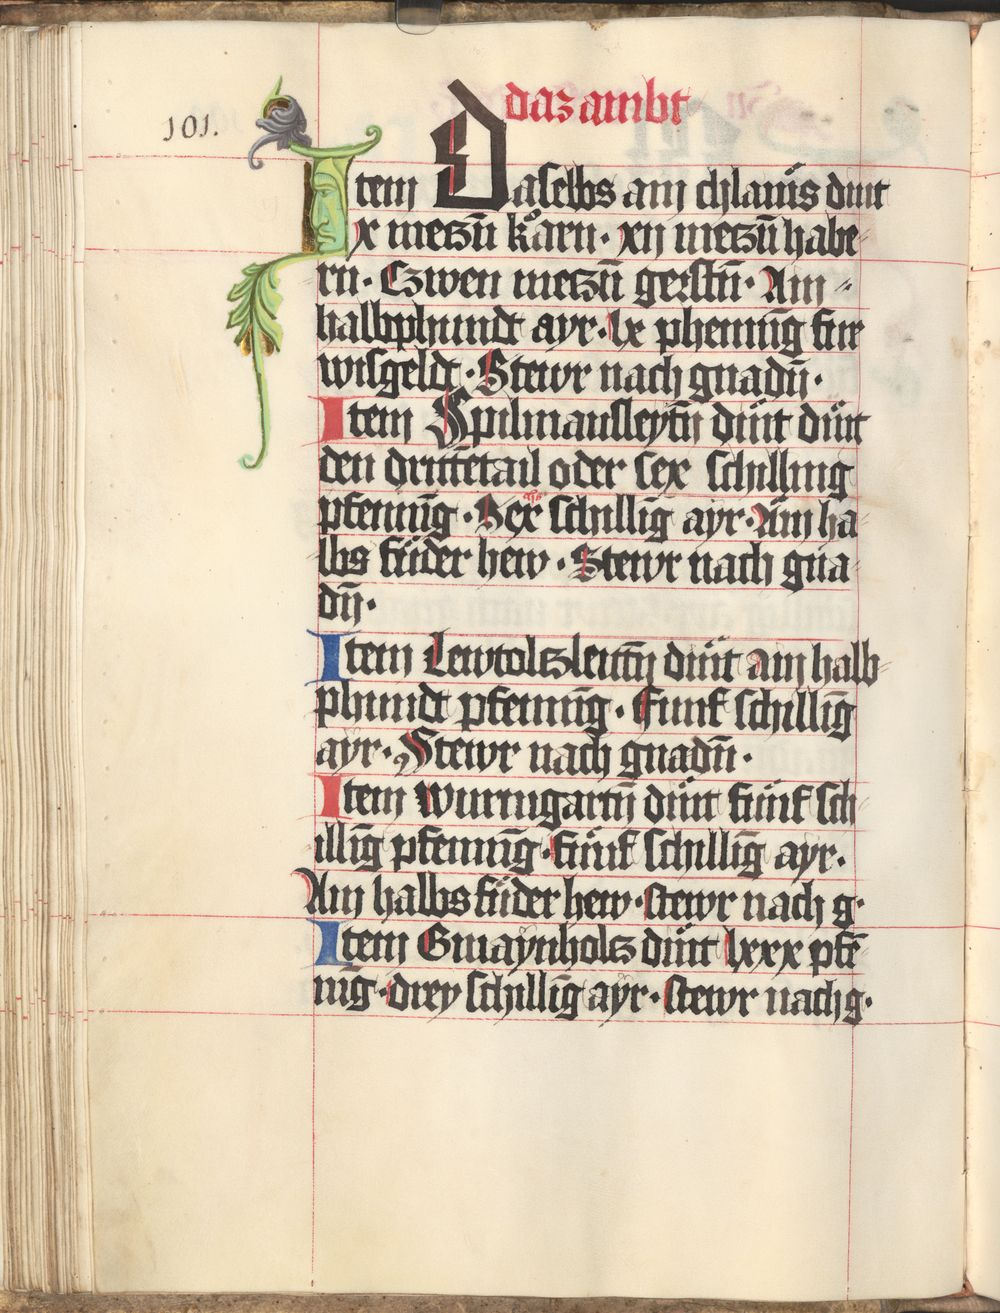 daz ambt
101.
Item Daselbs am chlaus dint
x meczn̄ korn · xij meczn̄ habe
rn · Czwen meczn̄ gerstn̄ · Ain
halbphundt ayr · lx phennīg fur
wisgeldt · Stewr nach gnadn̄ ·
Item Spilmansleytn̄ dint dint
den dritetail oder sex schilling
pfennīg · Sex schillīg ayr · Ain ha
lbs fuder hew · Stewr nach gna
dn̄ ·
Item Lewtoltzleittn̄ dint ain halb
phundt pfennīg · Funf schillīg
ayr · Stewr nach gnadn̄ ·
Item Wurmgartn̄ dint funf sch
illīg pfennīg · funf schillīg ayr ·
Ain halbs fuder hew · stewr nach g ·
Item Gmaynholtz dint lxxx pfē
nīg · drey schillīg ayr · stewr nach g ·